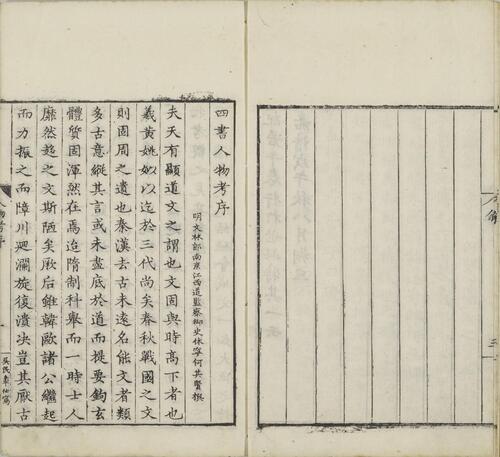 三
四書人物考序
明文林郎南京江西道監察御史休寧何其賢撰
夫天有顯道文之謂也文固與時高下者也
羲黃姚姒以迄於三代尚矣春秋戰國之文
則固周之遺也秦漢去古未遠名能文者類
多古意縱其言或未盡底於道而提要鉤玄
體質固渾然在焉迨隋制科舉而一時士人
靡然趨之文斯陋矣厥后雖韓歐諸公繼起
而力振之而障川廻瀾旋復潰决豈其厭古
人物考序
一